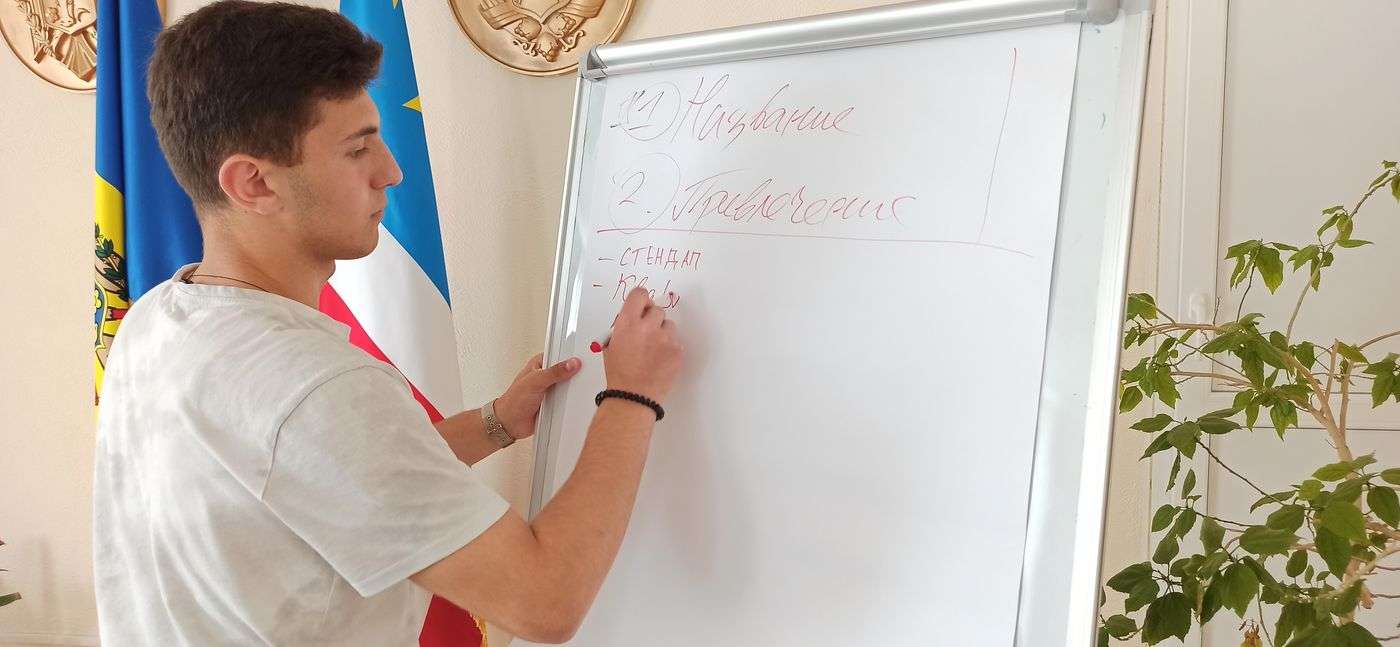 1 Название
2. Привлечение
- СТЕНДАП